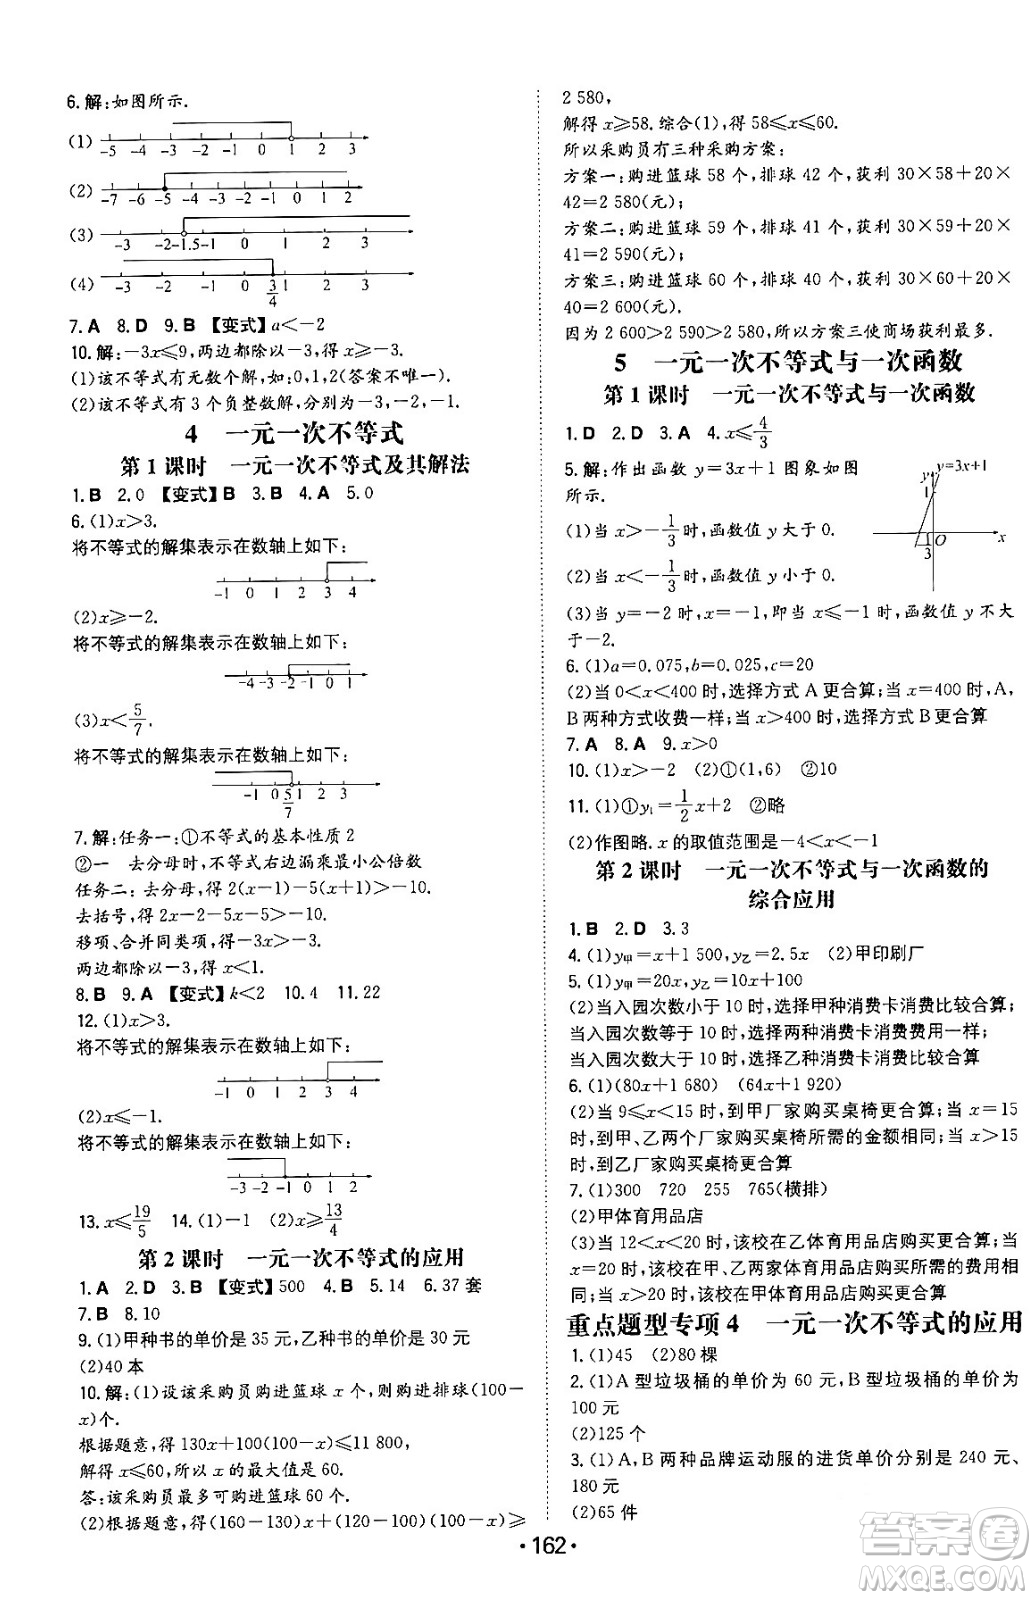 6.解:如图所示.
(1) -5 -4 -3 -2 -1 0 1 2 3
(2) -7 -6 -5 -4 -3 -2 -1 0 1 2
(3) -3 -2 -1.5 -1 0 1 2 3
(4) -3 -2 -1 0 3/4 1 2 3
7.A 8.D 9.B 【变式】a<-2
10.解:-3x≤9,两边都除以-3,得 x≥-3.
(1)该不等式有无数个解,如:0,1,2(答案不唯一).
(2)该不等式有 3 个负整数解,分别为-3,-2,-1.
4 一元一次不等式
第 1 课时 一元一次不等式及其解法
1.B 2.0 【变式】B 3.B 4.A 5.0
6.(1)x>3.
将不等式的解集表示在数轴上如下:
-1 0 1 2 3 4
(2)x≥-2.
将不等式的解集表示在数轴上如下:
-4 -3 -2 -1 0 1
(3)x<5/7.
将不等式的解集表示在数轴上如下:
-1 0 5/7 1 2 3
7.解:任务一:①不等式的基本性质 2
②一 去分母时,不等式右边漏乘最小公倍数
任务二:去分母,得 2(x-1)-5(x+1)>-10.
去括号,得 2x-2-5x-5>-10.
移项、合并同类项,得-3x>-3.
两边都除以-3,得 x<1.
8.B 9.A 【变式】k<2 10.4 11.22
12.(1)x>3.
将不等式的解集表示在数轴上如下:
-1 0 1 2 3 4
(2)x≤-1.
将不等式的解集表示在数轴上如下:
-3 -2 -1 0 1 2
13.x≤19/5 14.(1)-1 (2)x≥13/4
第 2 课时 一元一次不等式的应用
1.A 2.D 3.B 【变式】500 4.B 5.14 6.37 套
7.B 8.10
9.(1)甲种书的单价是 35 元,乙种书的单价是 30 元
(2)40 本
10.解:(1)设该采购员购进篮球 x 个,则购进排球(100-
x)个.
根据题意,得 130x+100(100-x)≤11 800,
解得 x≤60,所以 x 的最大值是 60.
答:该采购员最多可购进篮球 60 个.
(2)根据题意,得(160-130)x+(120-100)(100-x)≥
2 580,
解得 x≥58.综合(1),得 58≤x≤60.
所以采购员有三种采购方案:
方案一:购进篮球 58 个,排球 42 个,获利 30×58+20×
42=2 580(元);
方案二:购进篮球 59 个,排球 41 个,获利 30×59+20×
41=2 590(元);
方案三:购进篮球 60 个,排球 40 个,获利 30×60+20×
40=2 600(元).
因为 2 600>2 590>2 580,所以方案三使商场获利最多.
5 一元一次不等式与一次函数
第 1 课时 一元一次不等式与一次函数
1.D 2.D 3.A 4.x≤4/3
5.解:作出函数 y=3x+1 图象如图
所示.
(1)当 x>-1/3时,函数值 y 大于 0.
(2)当 x<-1/3时,函数值 y 小于 0.
y y=3x+1 1 -1/3 O x
(3)当 y=-2 时,x=-1,即当 x≤-1 时,函数值 y 不大
于-2.
6.(1)a=0.075,b=0.025,c=20
(2)当 0<x<400 时,选择方式 A 更合算;当 x=400 时,A,
B 两种方式收费一样;当 x>400 时,选择方式 B 更合算
7.A 8.A 9.x>0
10.(1)x>-2 (2)①(1,6) ②10
11.(1)①y₁=1/2x+2 ②略
(2)作图略.x 的取值范围是-4<x<-1
第 2 课时 一元一次不等式与一次函数的
综合应用
1.B 2.D 3.3
4.(1)y甲=x+1 500,y乙=2.5x (2)甲印刷厂
5.(1)y甲=20x,y乙=10x+100
(2)当入园次数小于 10 时,选择甲种消费卡消费比较合算;
当入园次数等于 10 时,选择两种消费卡消费费用一样;
当入园次数大于 10 时,选择乙种消费卡消费比较合算
6.(1)(80x+1 680) (64x+1 920)
(2)当 9≤x<15 时,到甲厂家购买桌椅更合算;当 x=15
时,到甲、乙两个厂家购买桌椅所需的金额相同;当 x>15
时,到乙厂家购买桌椅更合算
7.(1)300 720 255 765(横排)
(2)甲体育用品店
(3)当 12<x<20 时,该校在乙体育用品店购买更合算;当
x=20 时,该校在甲、乙两家体育用品店购买所需的费用相
同;当 x>20 时,该校在甲体育用品店购买更合算
重点题型专项 4 一元一次不等式的应用
1.(1)45 (2)80 棵
2.(1)A 型垃圾桶的单价为 60 元,B 型垃圾桶的单价为
100 元
(2)125 个
3.(1)A,B 两种品牌运动服的进货单价分别是 240 元、
180 元
(2)65 件
·162·
答案圈
MXQE.COM